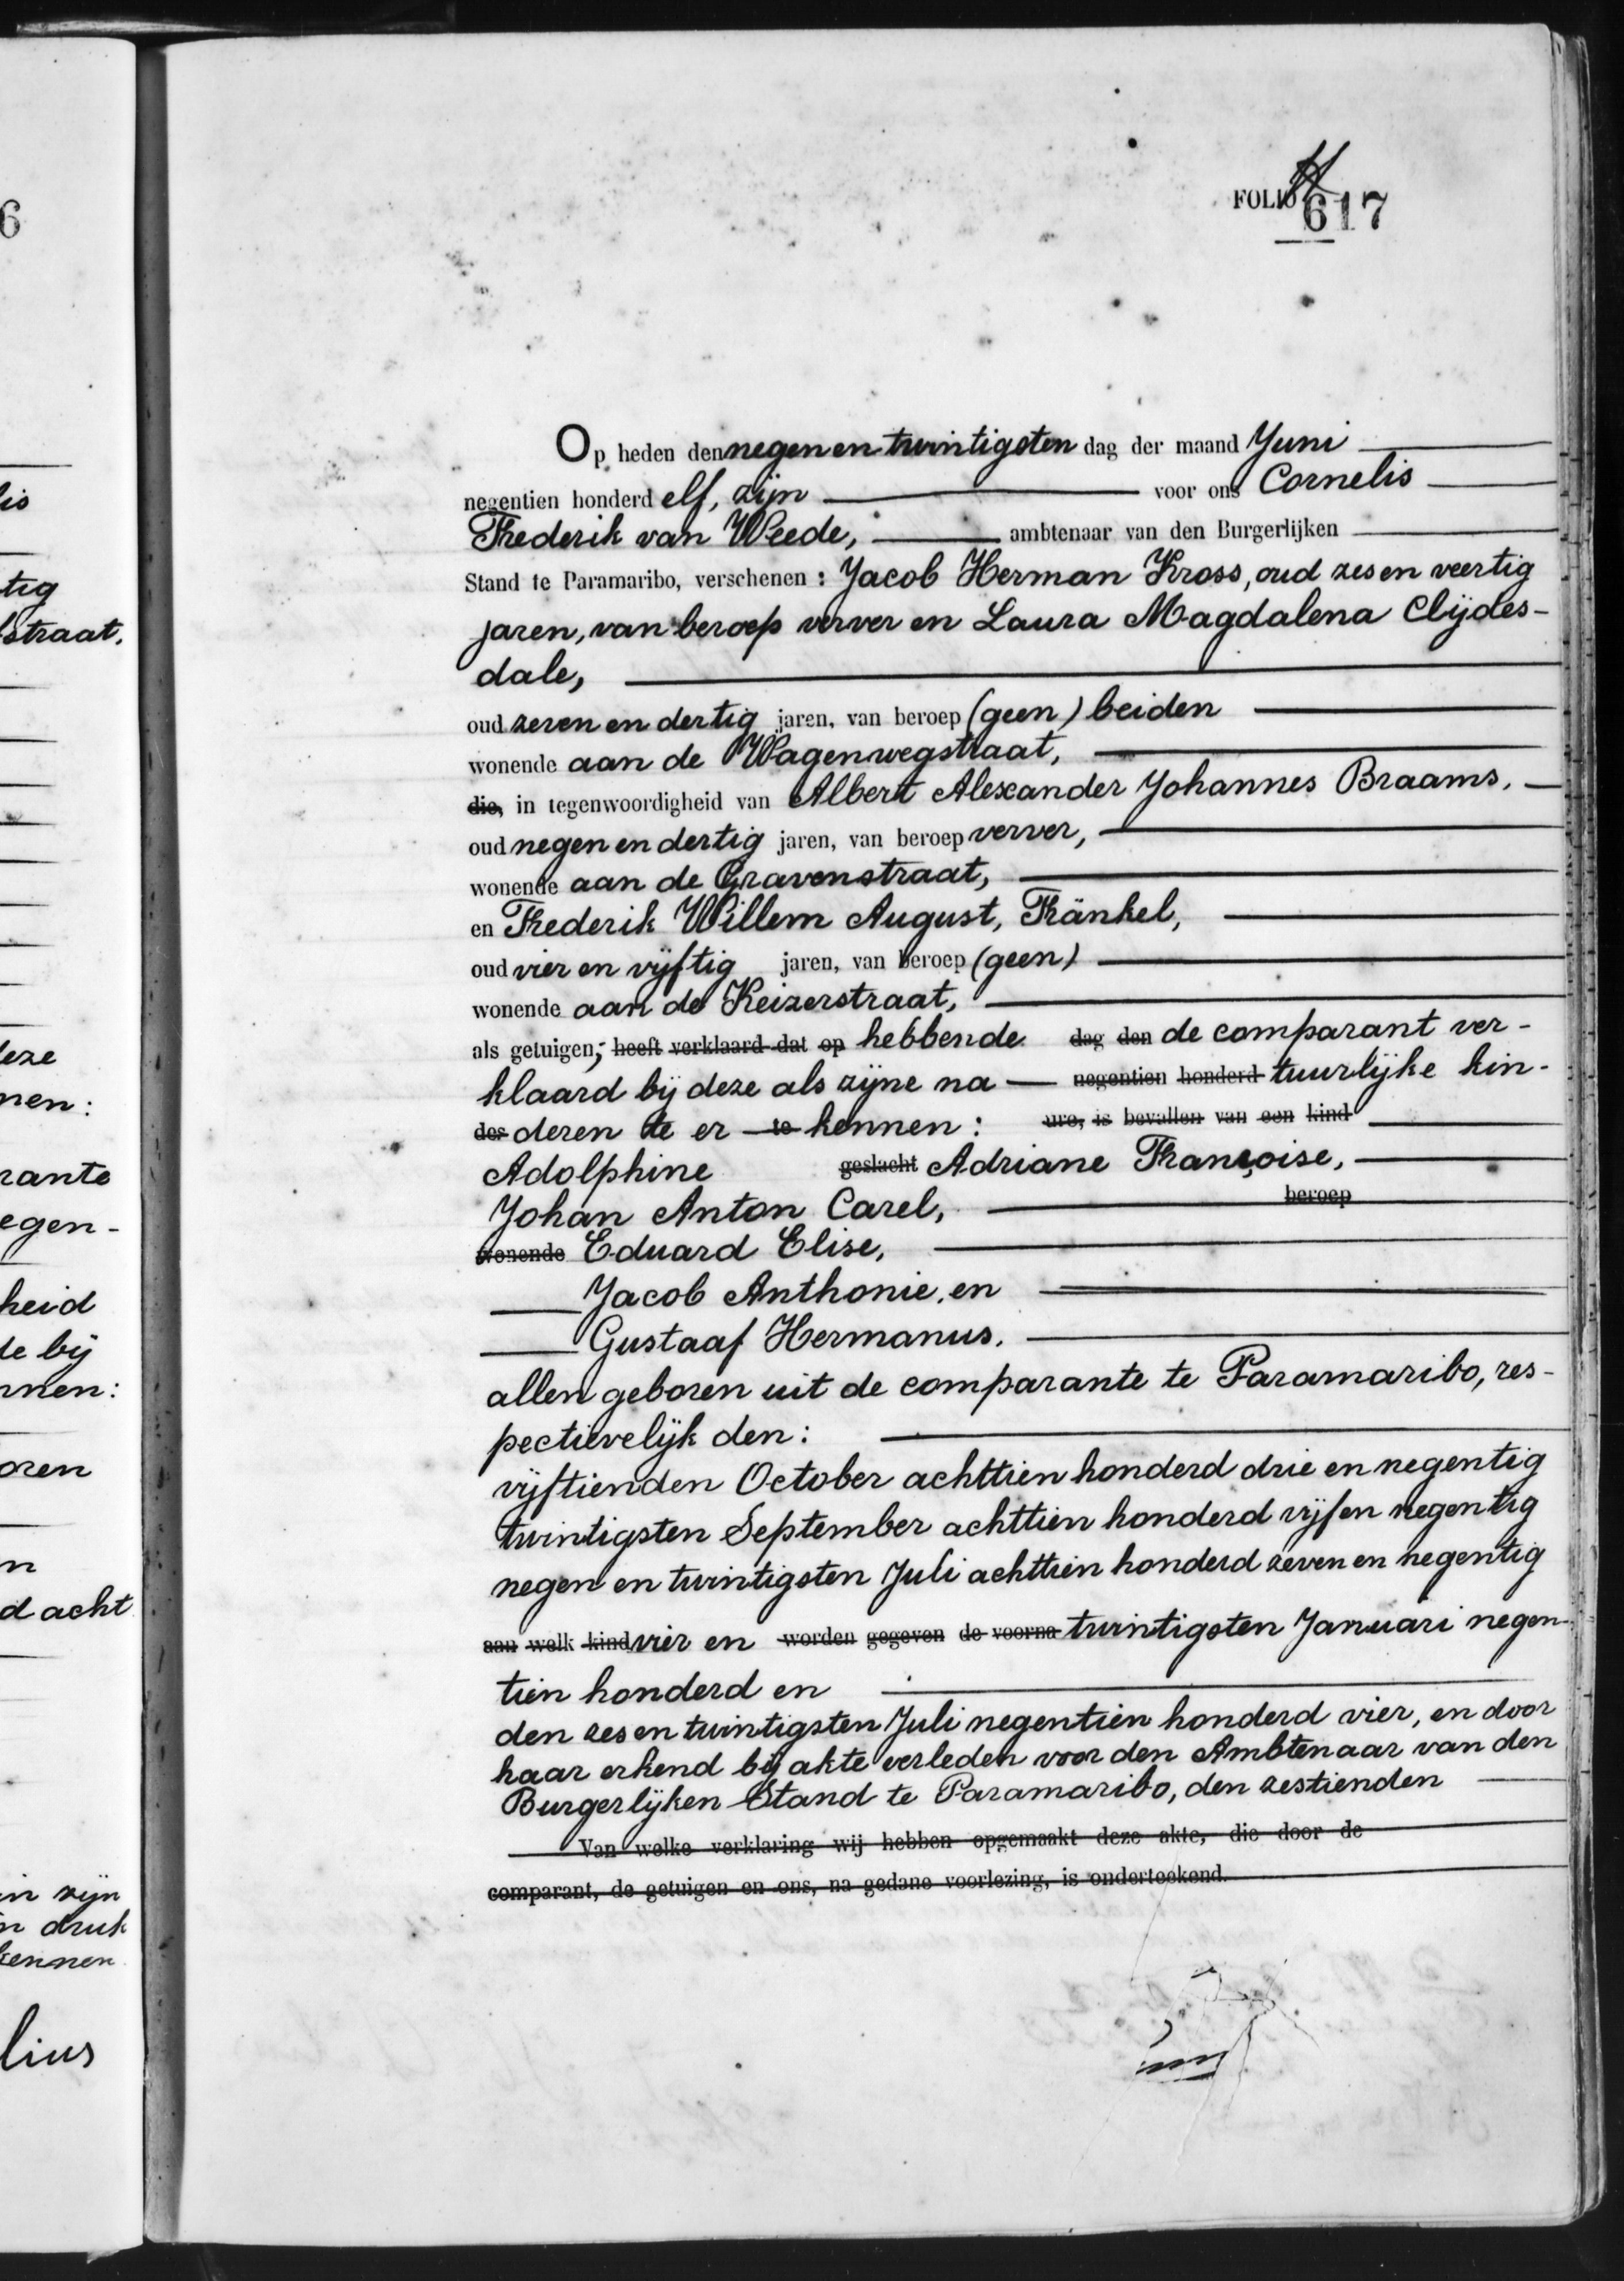 6
lis
tig
straat.
deze
nen:
rante
egen-
heid
de bij
nnen:
oren
n
d acht
in zijn
n druk
kennen
lius
FOLIO 617
Op heden den negen en twintigsten dag der maand Juni
negentien honderd elf, zijn voor ons Cornelis
Frederik van Weede, ambtenaar van den Burgerlijken
Stand te Paramaribo, verschenen: Jacob Herman Kross, oud zes en veertig
jaren, van beroep verver en Laura Magdalena Clijdes-
dale,
oud zeven en dertig jaren, van beroep (geen) beiden
wonende aan de Wagenwegstraat,
die, in tegenwoordigheid van Albert Alexander Johannes Braams,
oud negen en dertig jaren, van beroep verver,
wonende aan de Gravenstraat,
en Frederik Willem August, Fränkel,
oud vier en vijftig jaren, van beroep (geen)
wonende aan de Keizerstraat,
als getuigen, heeft verklaard dat op hebbende dag den de comparant ver-
klaard bij deze als zijne na- negentien honderd tuurlijke kin-
des deren te er te kennen: ure, is bevallen van een kind
Adolphine geslacht Adriane Françoise,
Johan Anton Carel, beroep
wonende Eduard Elise,
Jacob Anthonie, en
Gustaaf Hermanus.
allen geboren uit de comparante te Paramaribo, res-
pectievelijk den:
vijftienden October achttien honderd drie en negentig
twintigsten September achttien honderd vijf en negentig
negen en twintigsten Juli achttien honderd zeven en negentig
aan welk kind vier en worden gegeven de voorna twintigsten Januari negen-
tien honderd en
den zes en twintigsten Juli negentien honderd vier, en door
haar erkend bij akte verleden voor den Ambtenaar van den
Burgerlijken Stand te Paramaribo, den zestienden
Van welke verklaring wij hebben opgemaakt deze akte, die door de
comparant, de getuigen en ons, na gedane voorlezing, is onderteekend.